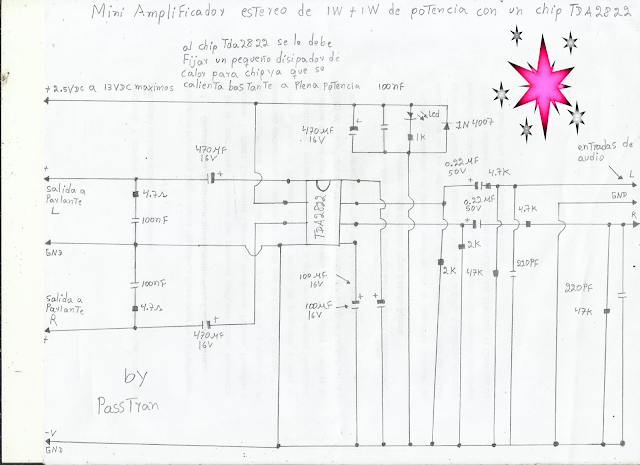 Mini Amplificador estereo de 1W + 1W de potencia con un chip TDA2822
al chip Tda2822 se le debe
Fijar un pequeño disipador de
calor para chip ya que se
calienta bastante a plena potencia
+ 2.5VDC a 13VDC maximos
100nF
Led
1K
1N 4007
470MF
16V
470MF
16V
entradas de
audio
+
salida a
Parlante
L
4.7Ω
100nF
TDA2822
0.22MF
50V
4.7K
L
GND
R
0.22MF
50V
4.7K
GND
2K
2K
47K
220PF
220PF
47K
100nF
4.7Ω
salida a
Parlante
R
+
100MF
16V
100MF
16V
470MF
16V
by
PassTrain
-V
GND